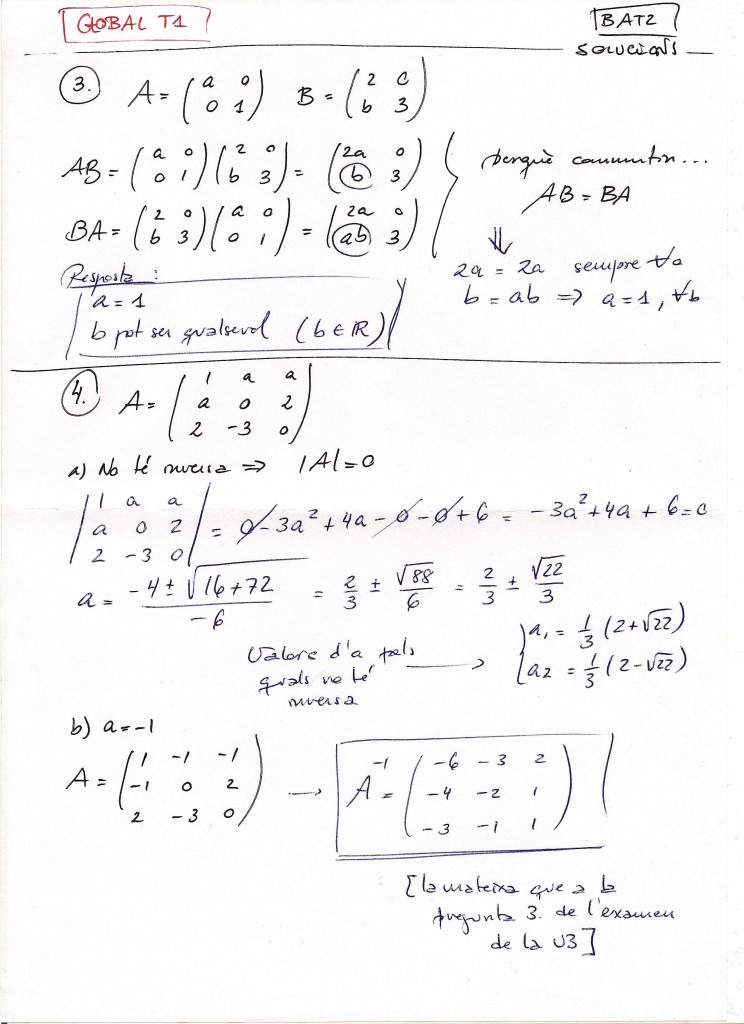 GLOBAL T1
BAT2
SOLUCIONS
3. A = ( a 0 ; 0 1 ) B = ( 2 c ; b 3 )
AB = ( a 0 ; 0 1 ) ( 2 0 ; b 3 ) = ( 2a 0 ; b 3 )
BA = ( 2 0 ; b 3 ) ( a 0 ; 0 1 ) = ( 2a 0 ; ab 3 )
perquè commutin...
AB = BA
⇓
2a = 2a sempre ∀a
b = ab ⇒ a = 1, ∀b
Resposta:
a = 1
b pot ser qualsevol (b ∈ ℝ)
4. A = ( 1 a a ; a 0 2 ; 2 -3 0 )
a) No té inversa ⇒ |A| = 0
| 1 a a ; a 0 2 ; 2 -3 0 | = 0 - 3a² + 4a - 0 - 0 + 6 = -3a² + 4a + 6 = 0
a = (-4 ± √(16+72)) / -6 = 2/3 ± √88/6 = 2/3 ± √22/3
Valors d'a pels
quals no té
inversa
→
a₁ = 1/3 (2+√22)
a₂ = 1/3 (2-√22)
b) a = -1
A = ( 1 -1 -1 ; -1 0 2 ; 2 -3 0 ) → A⁻¹ = ( -6 -3 2 ; -4 -2 1 ; -3 -1 1 )
[la mateixa que a la
pregunta 3. de l'examen
de la U3]